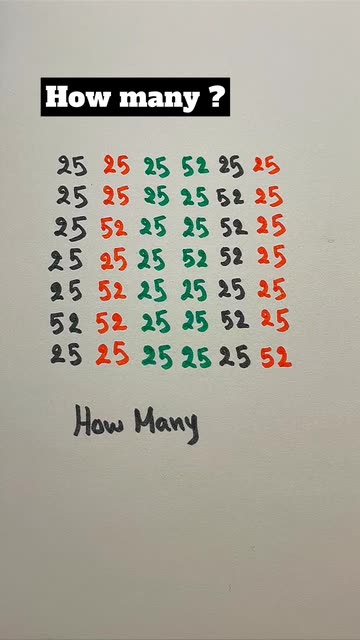 How many ?
25 25 25 52 25 25
25 25 25 25 52 25
25 52 25 25 52 25
25 25 25 52 52 25
25 52 25 25 25 25
52 52 25 25 52 25
25 25 25 25 25 52
How Many